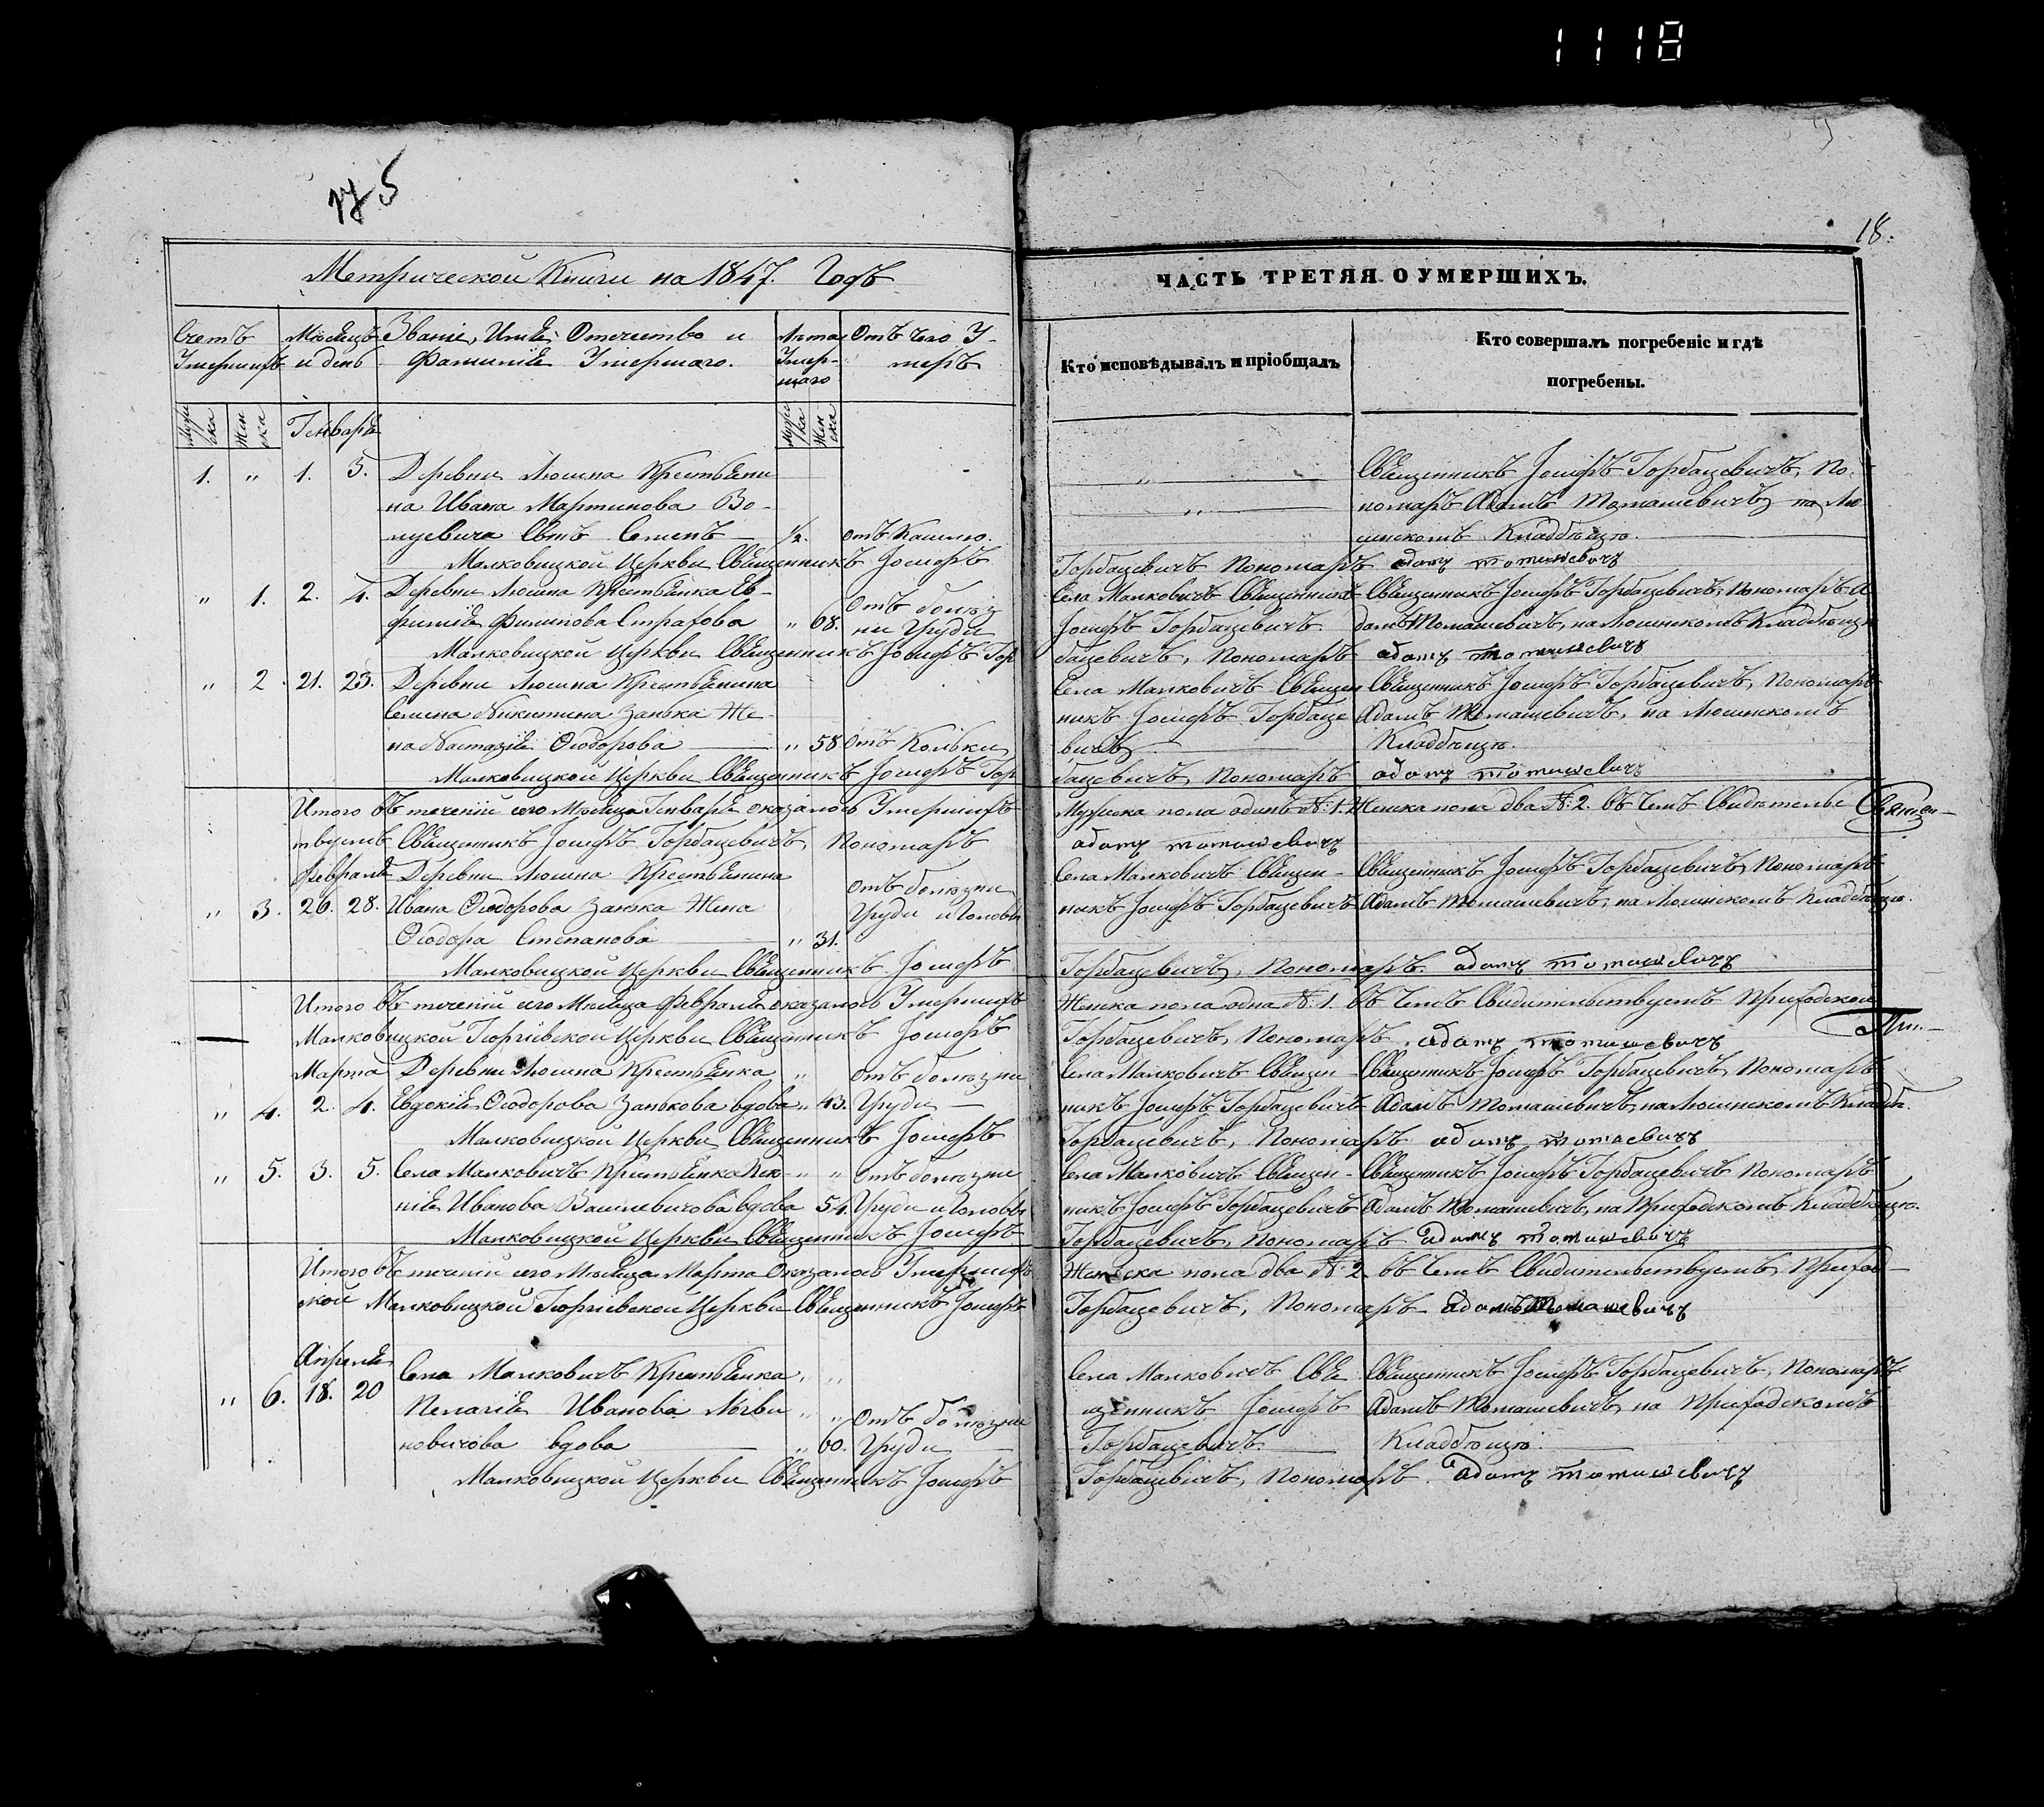 1118
175
18.
Метрической Книги на 1847. Годъ
ЧАСТЬ ТРЕТЯЯ О УМЕРШИХЪ.
Счетъ Умершихъ
Мѣсяцъ и день
Званіе, Имя, Отчество и Фамилія Умершаго.
Лѣта Умершаго
Отъ чего Умеръ
Кто исповѣдывалъ и пріобщалъ
Кто совершалъ погребеніе и гдѣ погребены.
Генваря
1. " 1. 3. Деревни Люсина Крестьяни
на Ивана Мартинова Во-
Сынъ Семенъ — 1/2. отъ Кашлю.
Священникъ Іосифъ Горбацевичъ, По-
номарь Адамъ Томашевичъ на Лю
синскомъ Кладбѣщѣ.
Малковицкой Церкви Священникъ Іосифъ Горбацевичъ Пономарь адамъ томашевичъ
" 1. 2. 4. Деревни Люсина Крестьянка Ев-
фимія Филипова " 68. Отъ болѣз
ни Груди
Села Малковичъ Священникъ
Іосифъ Горбацевичъ.
Священникъ Іосифъ Горбацевичъ, Пономарь А
дамъ Томашевичъ, на Люсинскомъ Кладбѣщѣ
Малковицкой Церкви Священникъ Іосифъ Гор
бацевичъ, Пономарь адамъ томашевичъ
" 2. 21. 23. Деревни Люсина Крестьянина
Семена Никитина Занька Же-
на Настазія Ѳеодорова — " 58. Отъ Кольки
Села Малковичъ Священ
никъ Іосифъ Горбаце
вичъ.
Священникъ Іосифъ Горбацевичъ, Пономарь
Адамъ Томашевичъ, на Люсинскомъ
Кладбѣщѣ.
Малковицкой Церкви Священникъ Іосифъ Гор
бацевичъ, Пономарь адамъ томашевичъ
Итого въ теченіи сего Мѣсяца Генваря оказалось Умершихъ Мужеска пола одинъ №: 1. Женска пола два №: 2. въ чемъ Свидѣтельс
твуемъ Священникъ Іосифъ Горбацевичъ, Пономарь адамъ томашевичъ
Февраля
" 3. 26. 28. Деревни Люсина Крестьянина
Ивана Ѳеодорова Занька Жена
Ѳеодора Степанова — " 31.
Отъ болѣзни
Груди и Головы
Села Малковичъ Священ-
никъ Іосифъ Горбацевичъ
Священникъ Іосифъ Горбацевичъ, Пономарь
Адамъ Томашевичъ, на Люсинскомъ Кладбѣщѣ.
Малковицкой Церкви Священникъ Іосифъ Горбацевичъ, Пономарь адамъ томашевичъ
Итого въ теченіи сего Мѣсяца Февраля оказалось Умершихъ Женска пола одна №: 1. въ чемъ Свидительствуемъ Приходской
Малковицкой Георгіевской Церкви Священникъ Іосифъ Горбацевичъ, Пономарь адамъ томашевичъ
Марта
" 4. 2. 4. Деревни Люсина Крестьянка
Евдокія Ѳеодорова Занькова вдова " 43.
Отъ болѣзни
Груди —
Села Малковичъ Священ-
никъ Іосифъ Горбацевичъ
Священникъ Іосифъ Горбацевичъ, Пономарь
Адамъ Томашевичъ, на Люсинскомъ Кладбѣ.
Малковицкой Церкви Священникъ Іосифъ Горбацевичъ, Пономарь адамъ томаевичъ
" 5. 3. 5. Села Малковичъ Крестьянка Ксе-
нія Иванова Василевичова вдова 54.
Отъ болѣзни
Груди и Головы
Села Малковичъ Священ-
никъ Іосифъ Горбацевичъ
Священникъ Іосифъ Горбацевичъ Пономарь
Адамъ Томашевичъ, на Приходскомъ Кладбѣщѣ.
Малковицкой Церкви Священникъ Іосифъ Горбацевичъ, Пономарь адамъ томашевичъ
Итого въ теченіи сего Мѣсяца Марта оказалось Умершихъ Женска пола два №: 2. въ чемъ Свидительствуемъ, Приход-
ской Малковицкой Георгіевской Церкви Священникъ Іосифъ Горбацевичъ, Пономарь Адамъ Томашевичъ
Апреля
" 6. 18. 20 Села Малковичъ Крестьянка
Пелагія Иванова Логви
новичова вдова — " 60.
Отъ болѣзни
Груди —
Села Малковичъ Свя
щенникъ Іосифъ
Горбацевичъ. —
Священникъ Іосифъ Горбацевичъ, Пономарь
Адамъ Томашевичъ, на Приходскомъ
Кладбѣщѣ.
Малковицкой Церкви Священникъ Іосифъ Горбацевичъ, Пономарь Адамъ томашевичъ